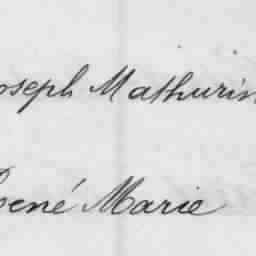 Joseph Mathurin
René Marie